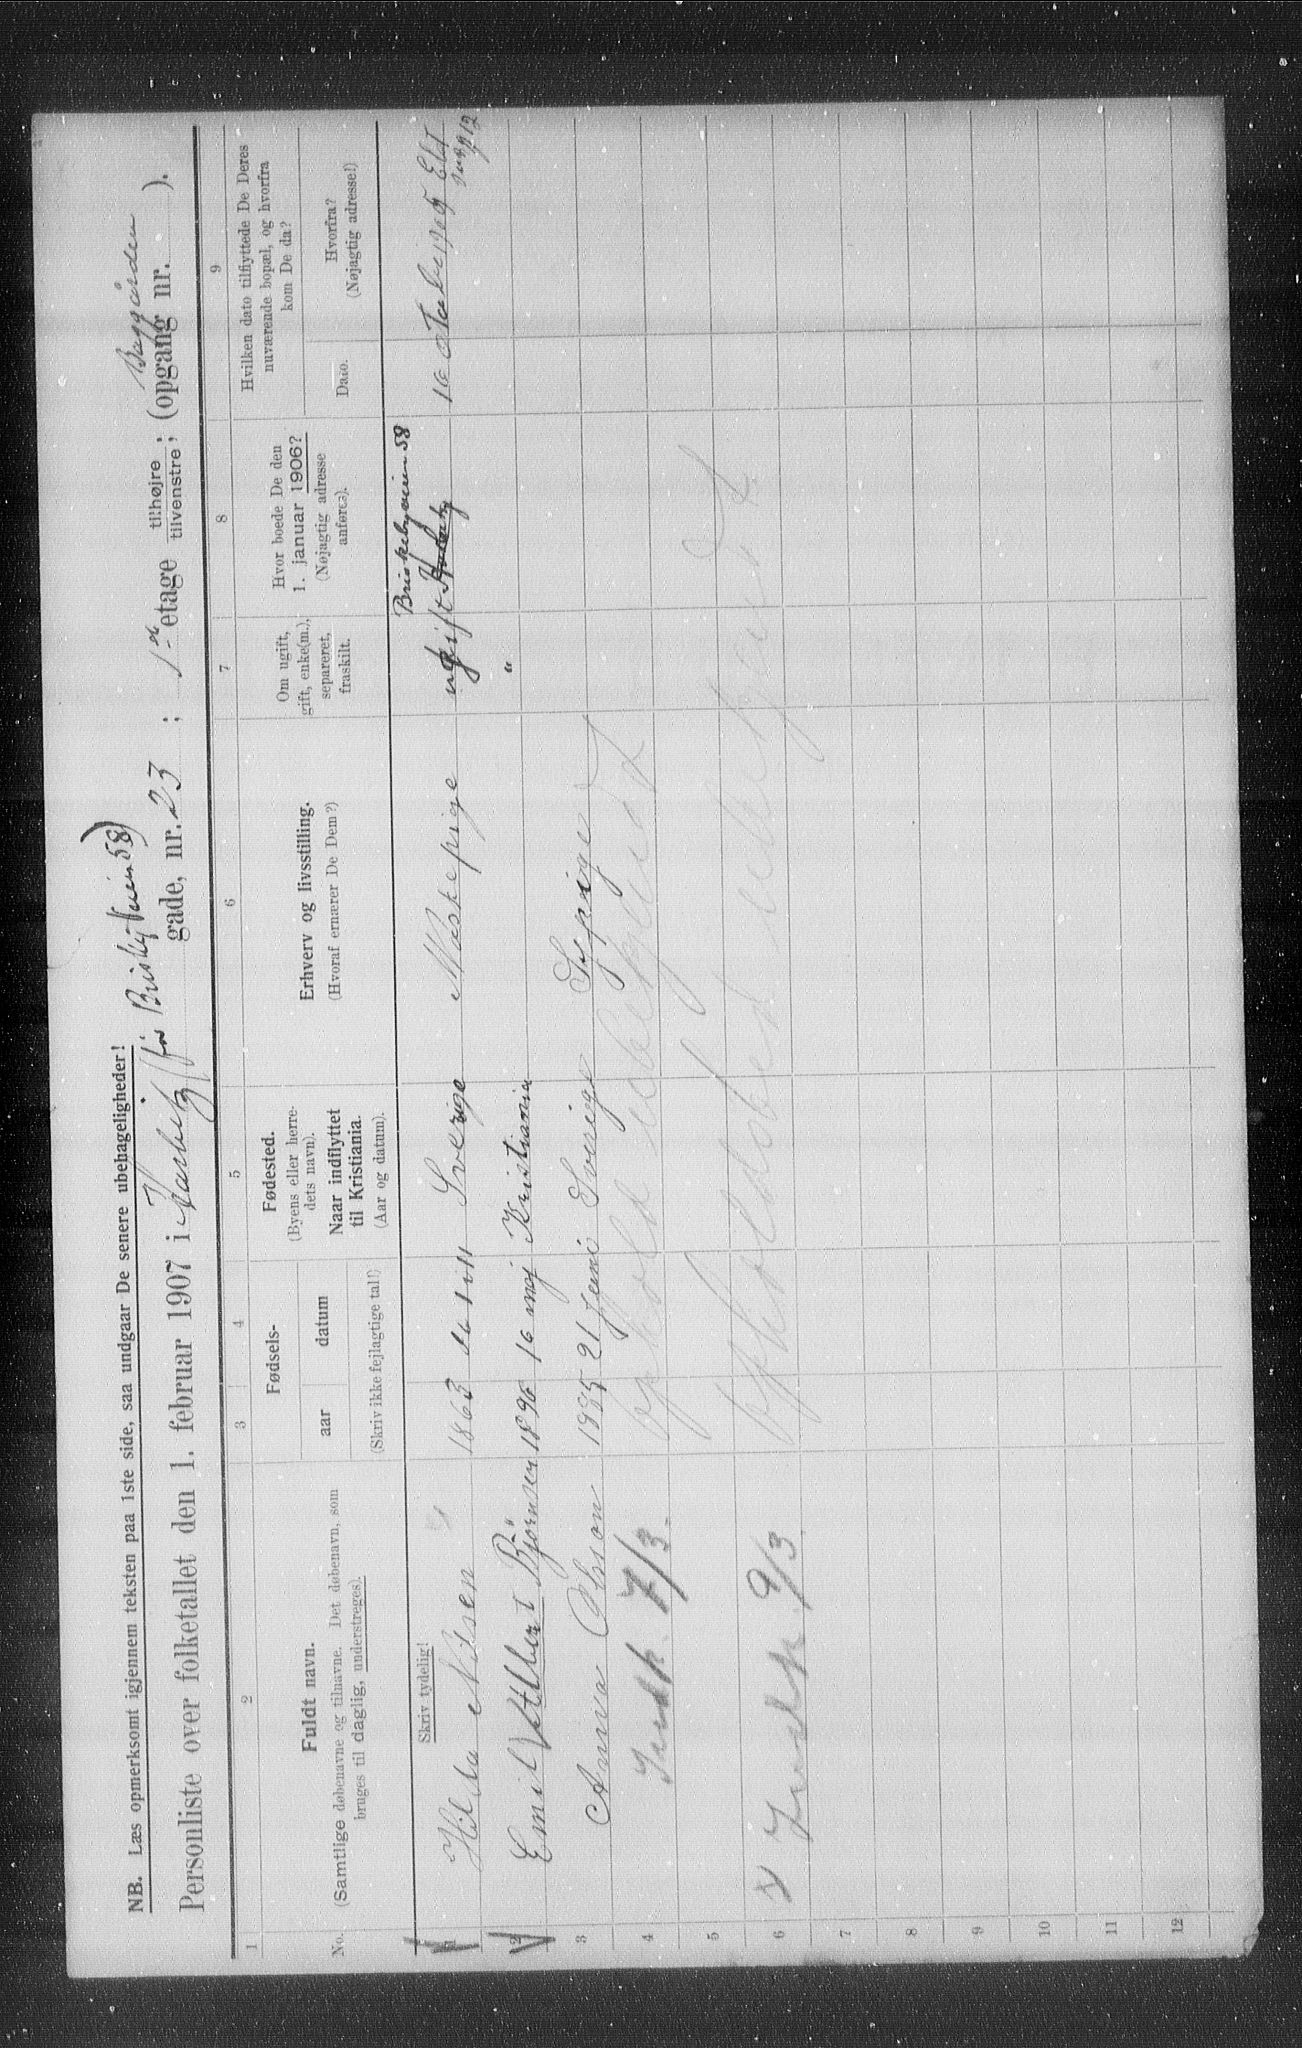 NB. Læs opmerksomt igjennem teksten paa 1ste side, saa undgaar De senere ubehageligheder!
(for Briskebyveien 58) Baggården
Personliste over folketallet den 1. februar 1907 i Harbitz gade, nr. 23 ; 1ste etage tilhøjre ; tilvenstre ; (opgang nr. ).
1 2 3 4 5 6 7 8 9
No.
Fuldt navn.
(Samtlige døbenavne og tilnavne. Det døbenavn, som
bruges til daglig, understreges).
Fødsels-
aar datum
(Skriv ikke fejlagtige tal!)
Fødested.
(Byens eller herre-
dets navn).
Naar indflyttet
til Kristiania.
(Aar og datum).
Erhverv og livsstilling.
(Hvoraf ernærer De Dem?)
Om ugift,
gift, enke(m.),
separeret,
fraskilt.
Hvor boede De den
1. januar 1906?
(Nøjagtig adresse
anføres).
Hvilken dato tilflyttede De Deres
nuværende bopæl, og hvorfra
kom De da?
Dato.
Hvorfra?
(Nøjagtig adresse!)
Skriv tydelig!
Briskebyveien 58
1 Hilda Nilsen 1863 Sverige Vaskepige ugift 16
2 Emil Albert Björnsen 1896 16 maj Kristiania "
3 Anna Olsson 1885 21 Juni Sverige
4 7/3.
5
6 9/3
7
8
9
10
11
12